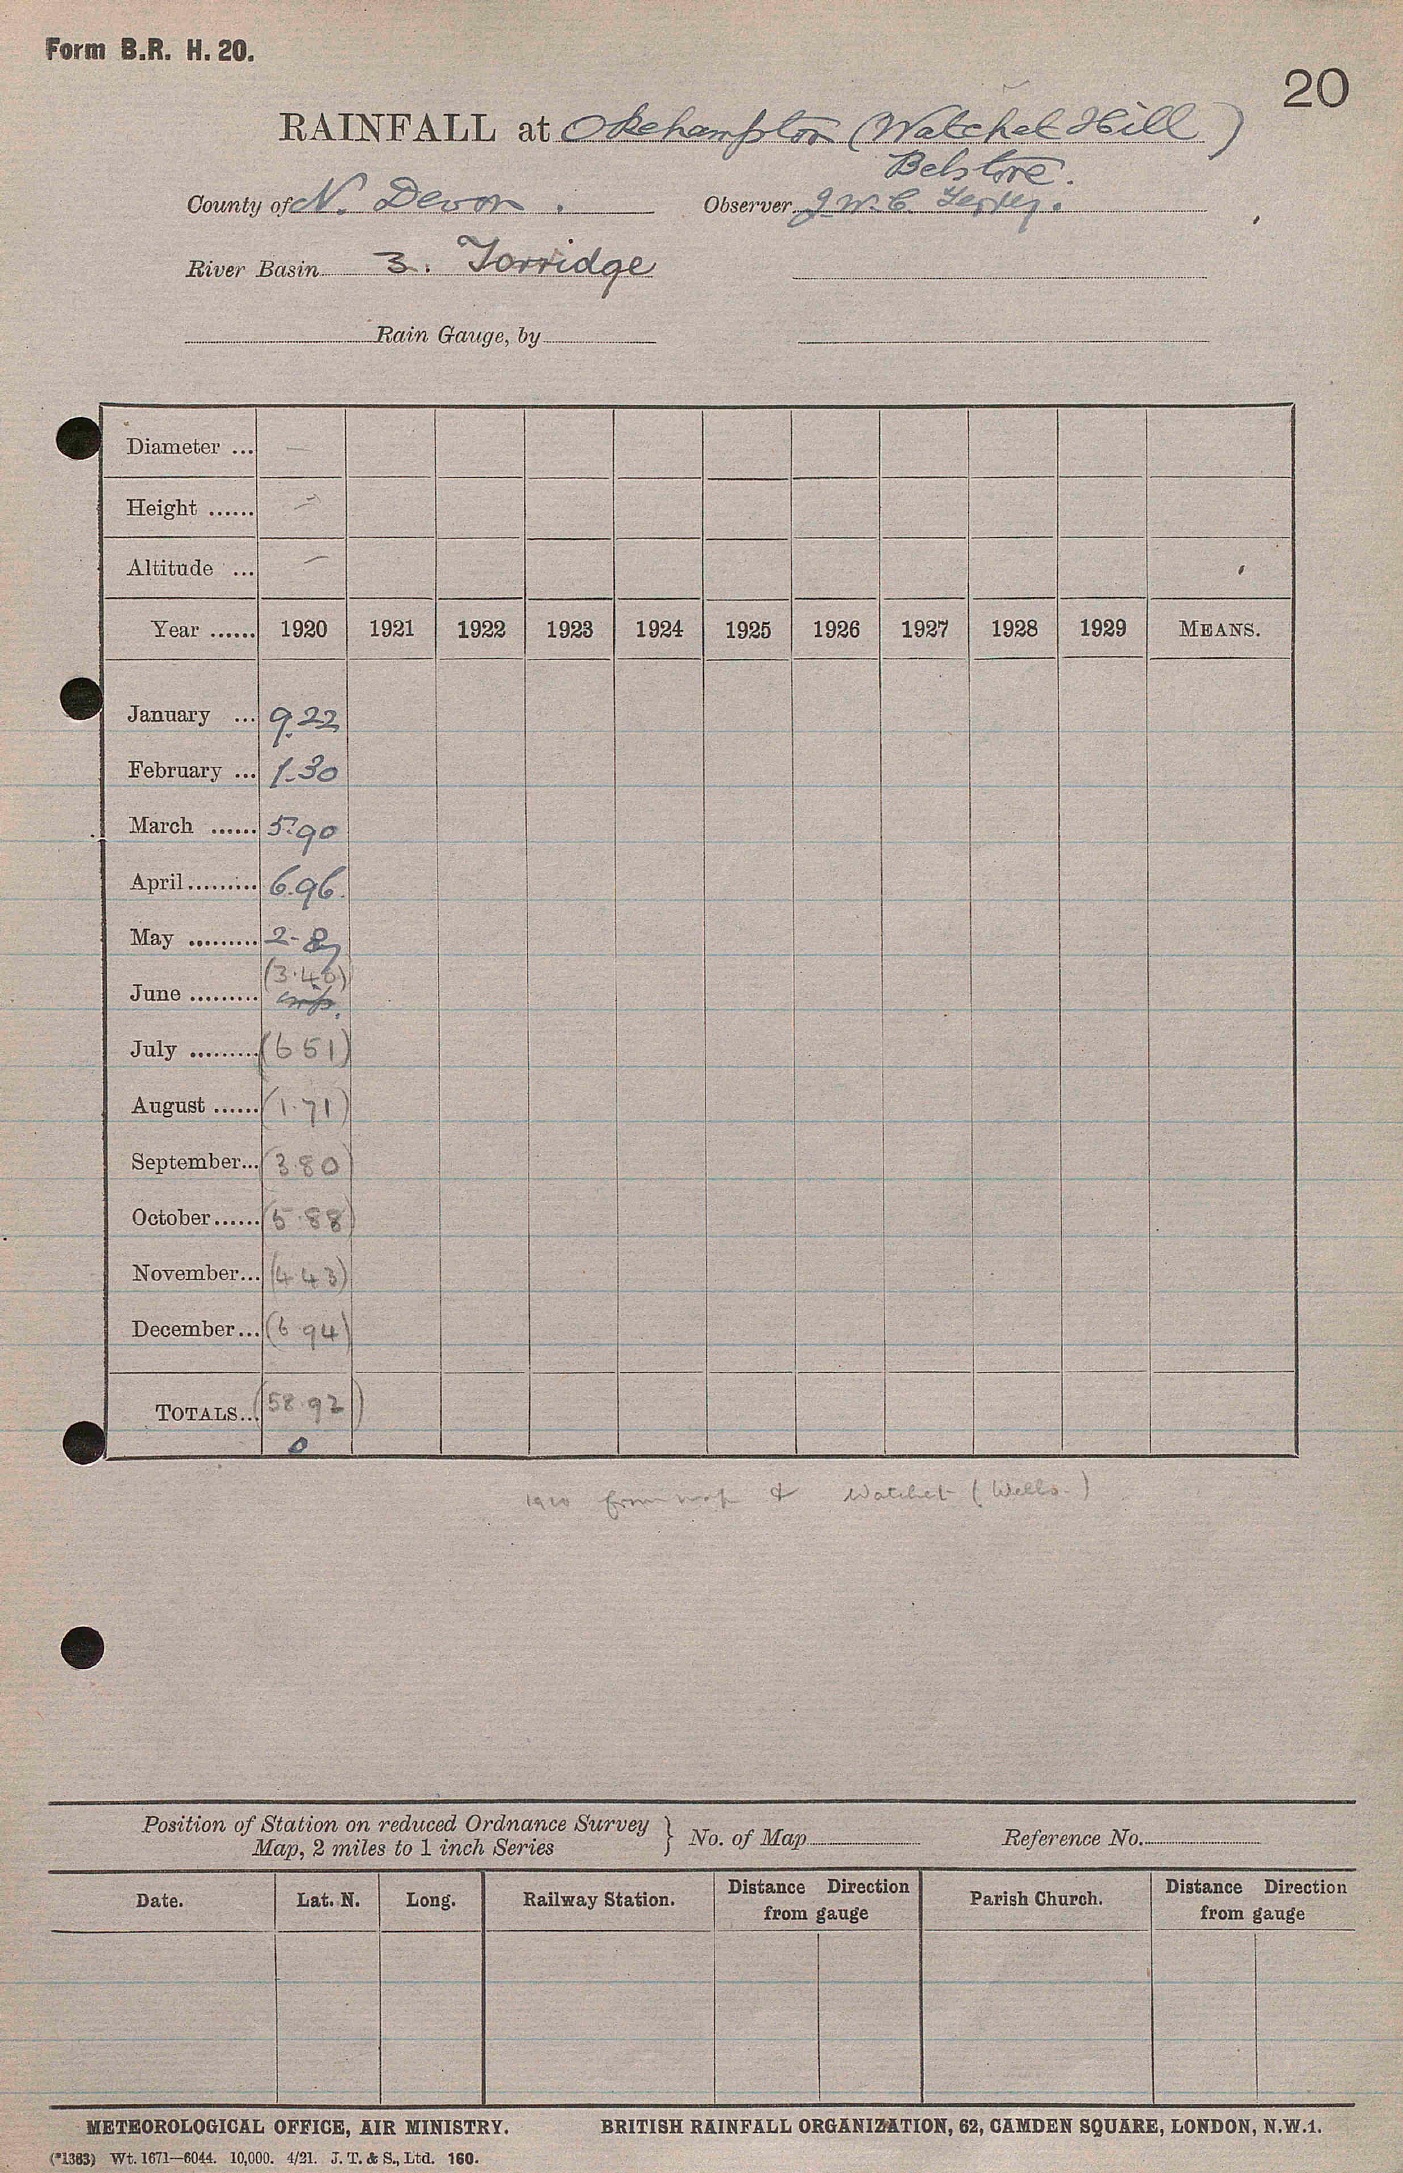 Form B.R. H. 20.
20
RAINFALL at Okehampton (Watchet Hill)
Belstone.
County of N. Devon. Observer J. W. C.
River Basin 3. Torridge
Rain Gauge, by
Diameter ... —
Height ...... —
Altitude ... —
Year ...... 1920 1921 1922 1923 1924 1925 1926 1927 1928 1929 MEANS.
January ... 9.22
February ... 1.30
March ...... 5.90
April ......... 6.96
May ......... 2.87
June ......... (3.40)
July ......... (6.51)
August ...... (1.71)
September... (3.80)
October...... (5.88)
November... (4.43)
December... (6.94)
TOTALS... (58.92)
0
1920 from map & Watchet (Wells.)
Position of Station on reduced Ordnance Survey Map, 2 miles to 1 inch Series } No. of Map Reference No.
Date. Lat. N. Long. Railway Station. Distance Direction from gauge Parish Church. Distance Direction from gauge
METEOROLOGICAL OFFICE, AIR MINISTRY. BRITISH RAINFALL ORGANIZATION, 62, CAMDEN SQUARE, LONDON, N.W.1.
(*1363) Wt. 1671—6044. 10,000. 4/21. J. T. & S., Ltd. 160.